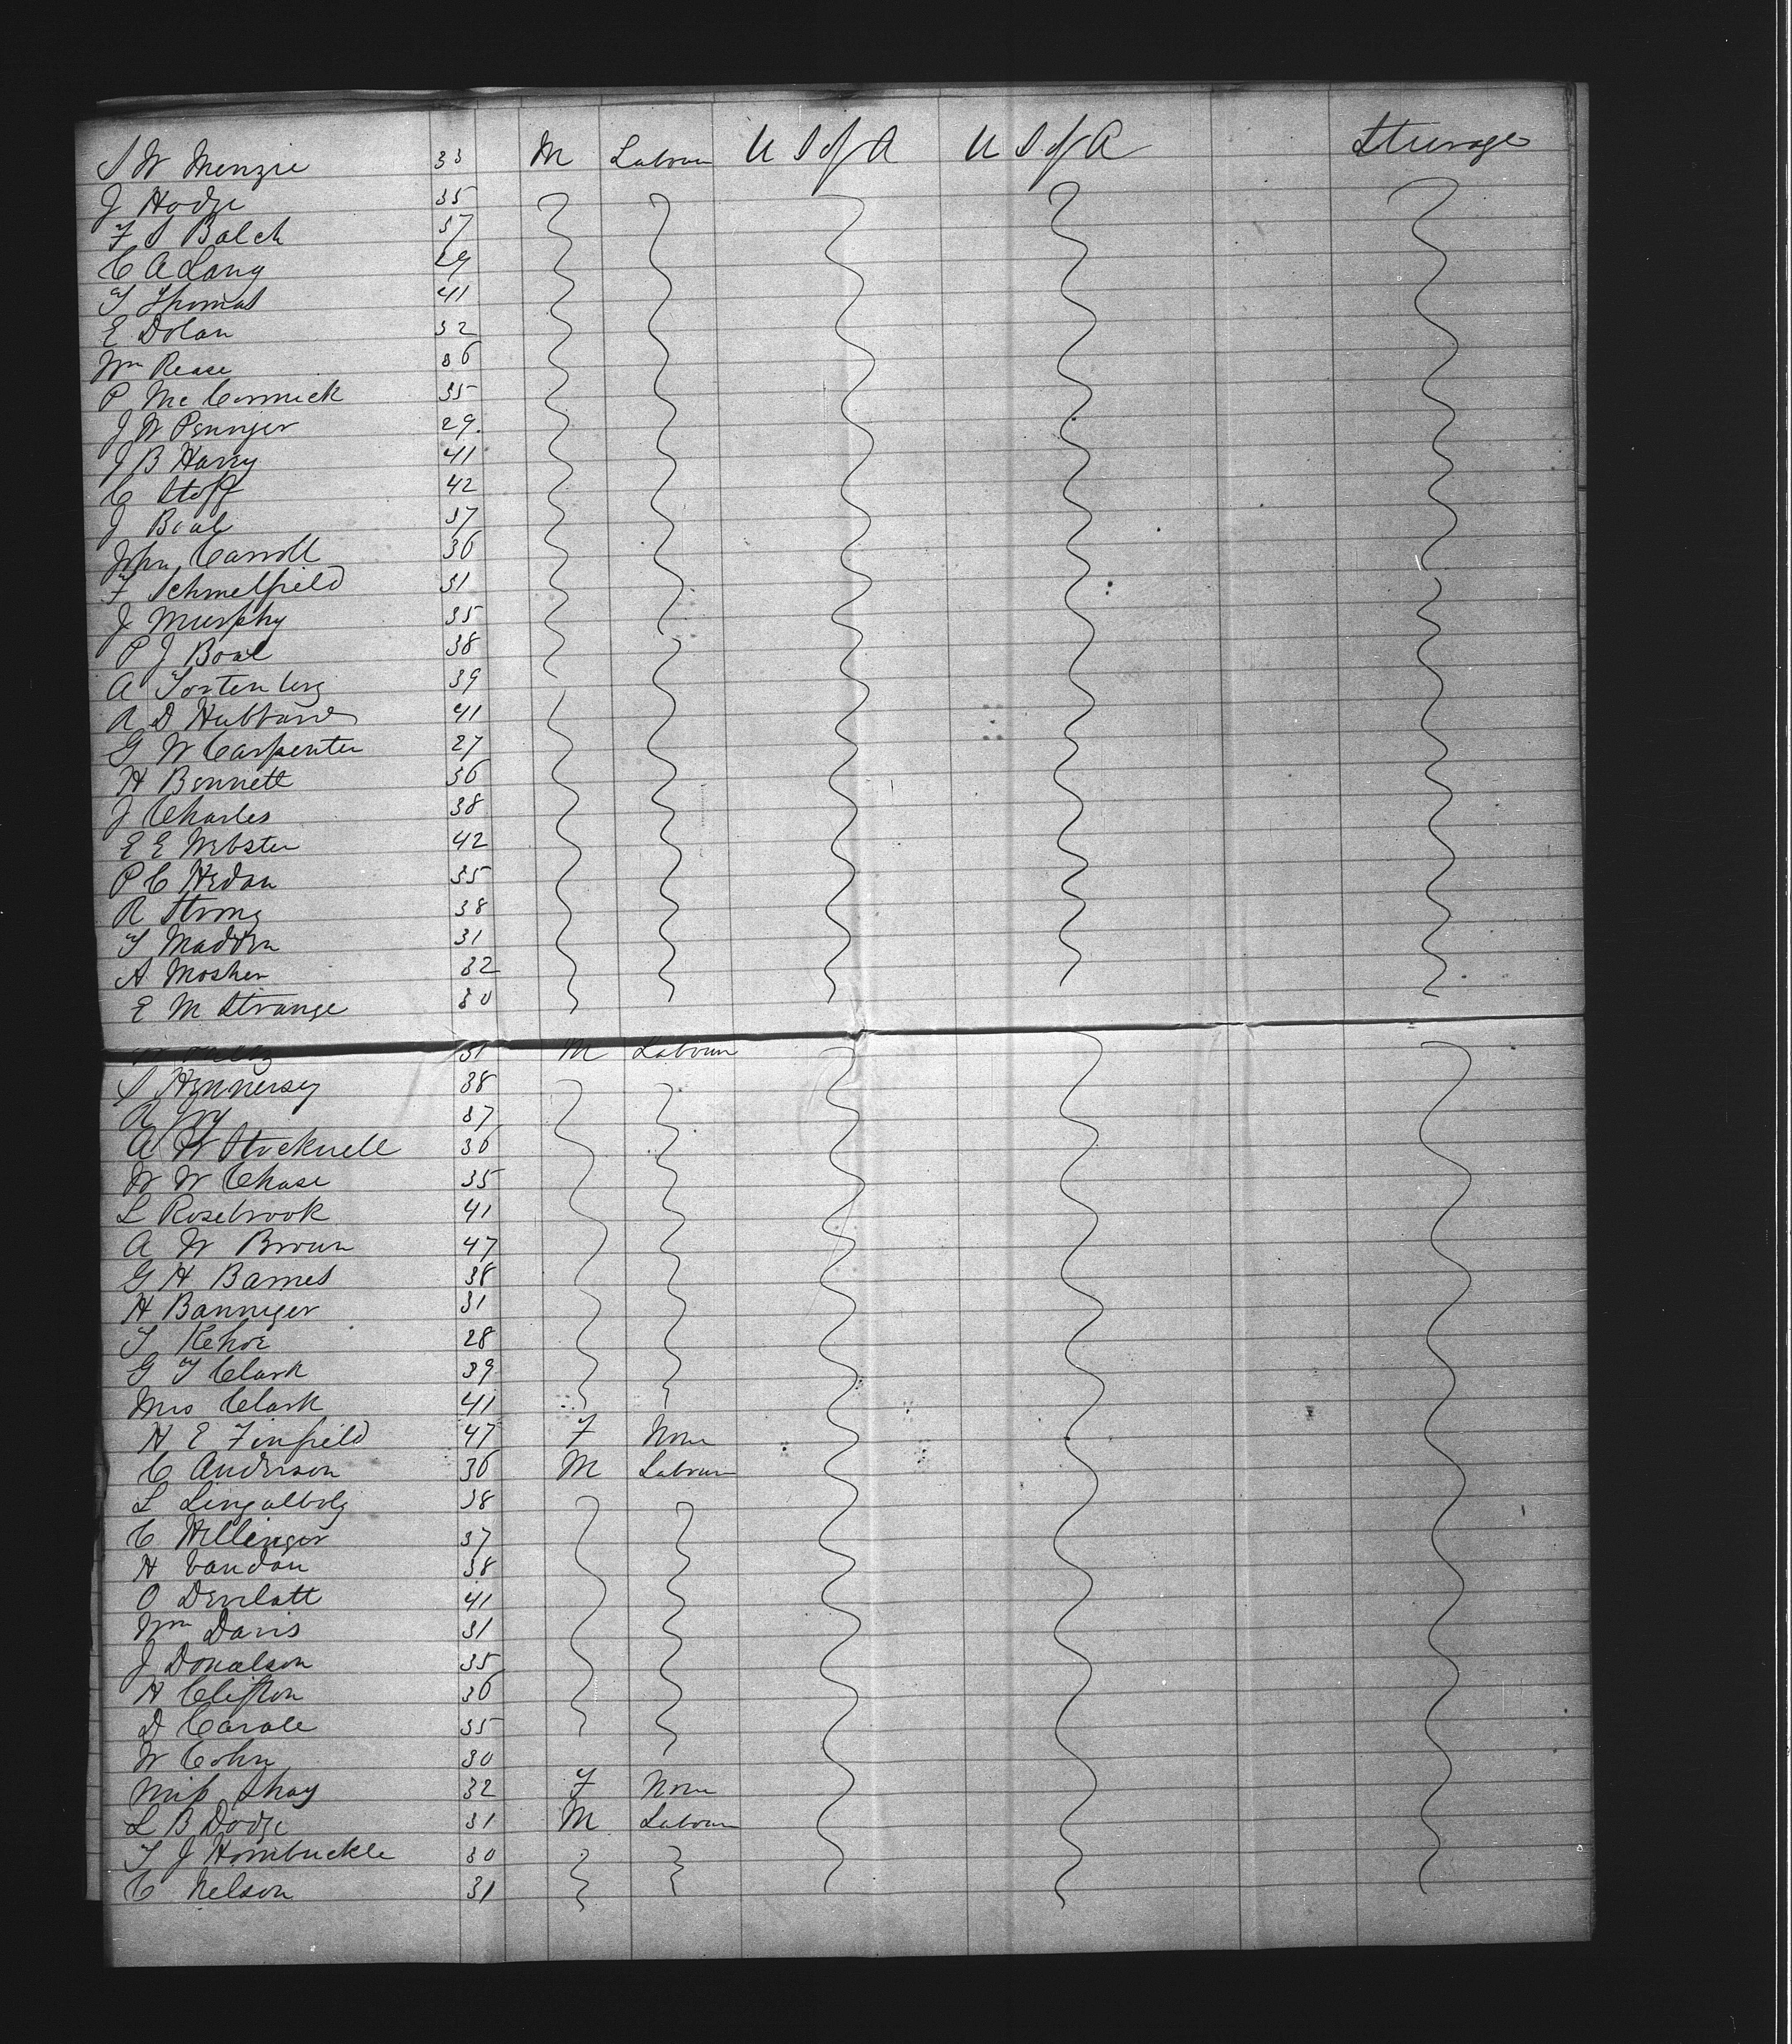 S W Menzie 33 M Labour U S of A U S of A Steerage
J Hodge 35
F S Balch 37
C A Lang 29
T Thomas 41
E Dolan 32
Wm Rease 36
P Mc Cormick 35
J W Pennyer 29
J B Harvy 41
C Stoff 42
J Boal 37
John Carroll 36
F Schmelfield 31
J Murphy 35
P J Boal 38
A Tortenberg 39
A D Hubbard 41
G W Carpenter 27
H Bennett 36
J Charles 38
E E Webster 42
P C Hedan 35
R Strong 38
T Madden 31
A Mosher 32
E M Strange 30
31 M Labour
S Hennersy 38
A Joy 37
A W Stocknell 36
W W Chase 35
L Rosebrook 41
A W Brown 47
G H Barnes 38
H Banniger 31
T Kehoe 28
G T Clark 39
Mrs Clark 41
H E Finfield 47 F None
C Anderson 36 M Labour
L Lingalbolg 38
C Hellinger 37
H Vandan 38
O Devilatt 41
Wm Davis 31
J Donalson 35
H Clifton 36
D Carole 35
W Cohn 30
Miss Shay 32 F None
L B Dodge 31 M Labour
T J Hornbuckle 30
C Nelson 31